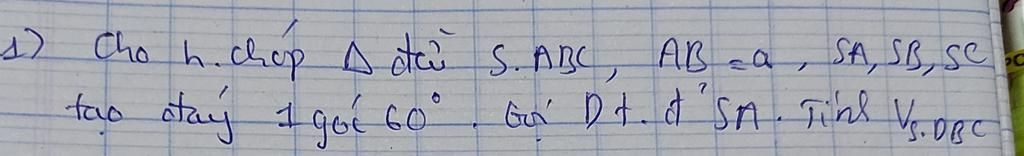 1) Cho h.chóp Δ đều S.ABC, AB = a, SA, SB, SC
tạo đáy 1 góc 60°. Gọi D t.đ' SA. Tính V_S.DBC